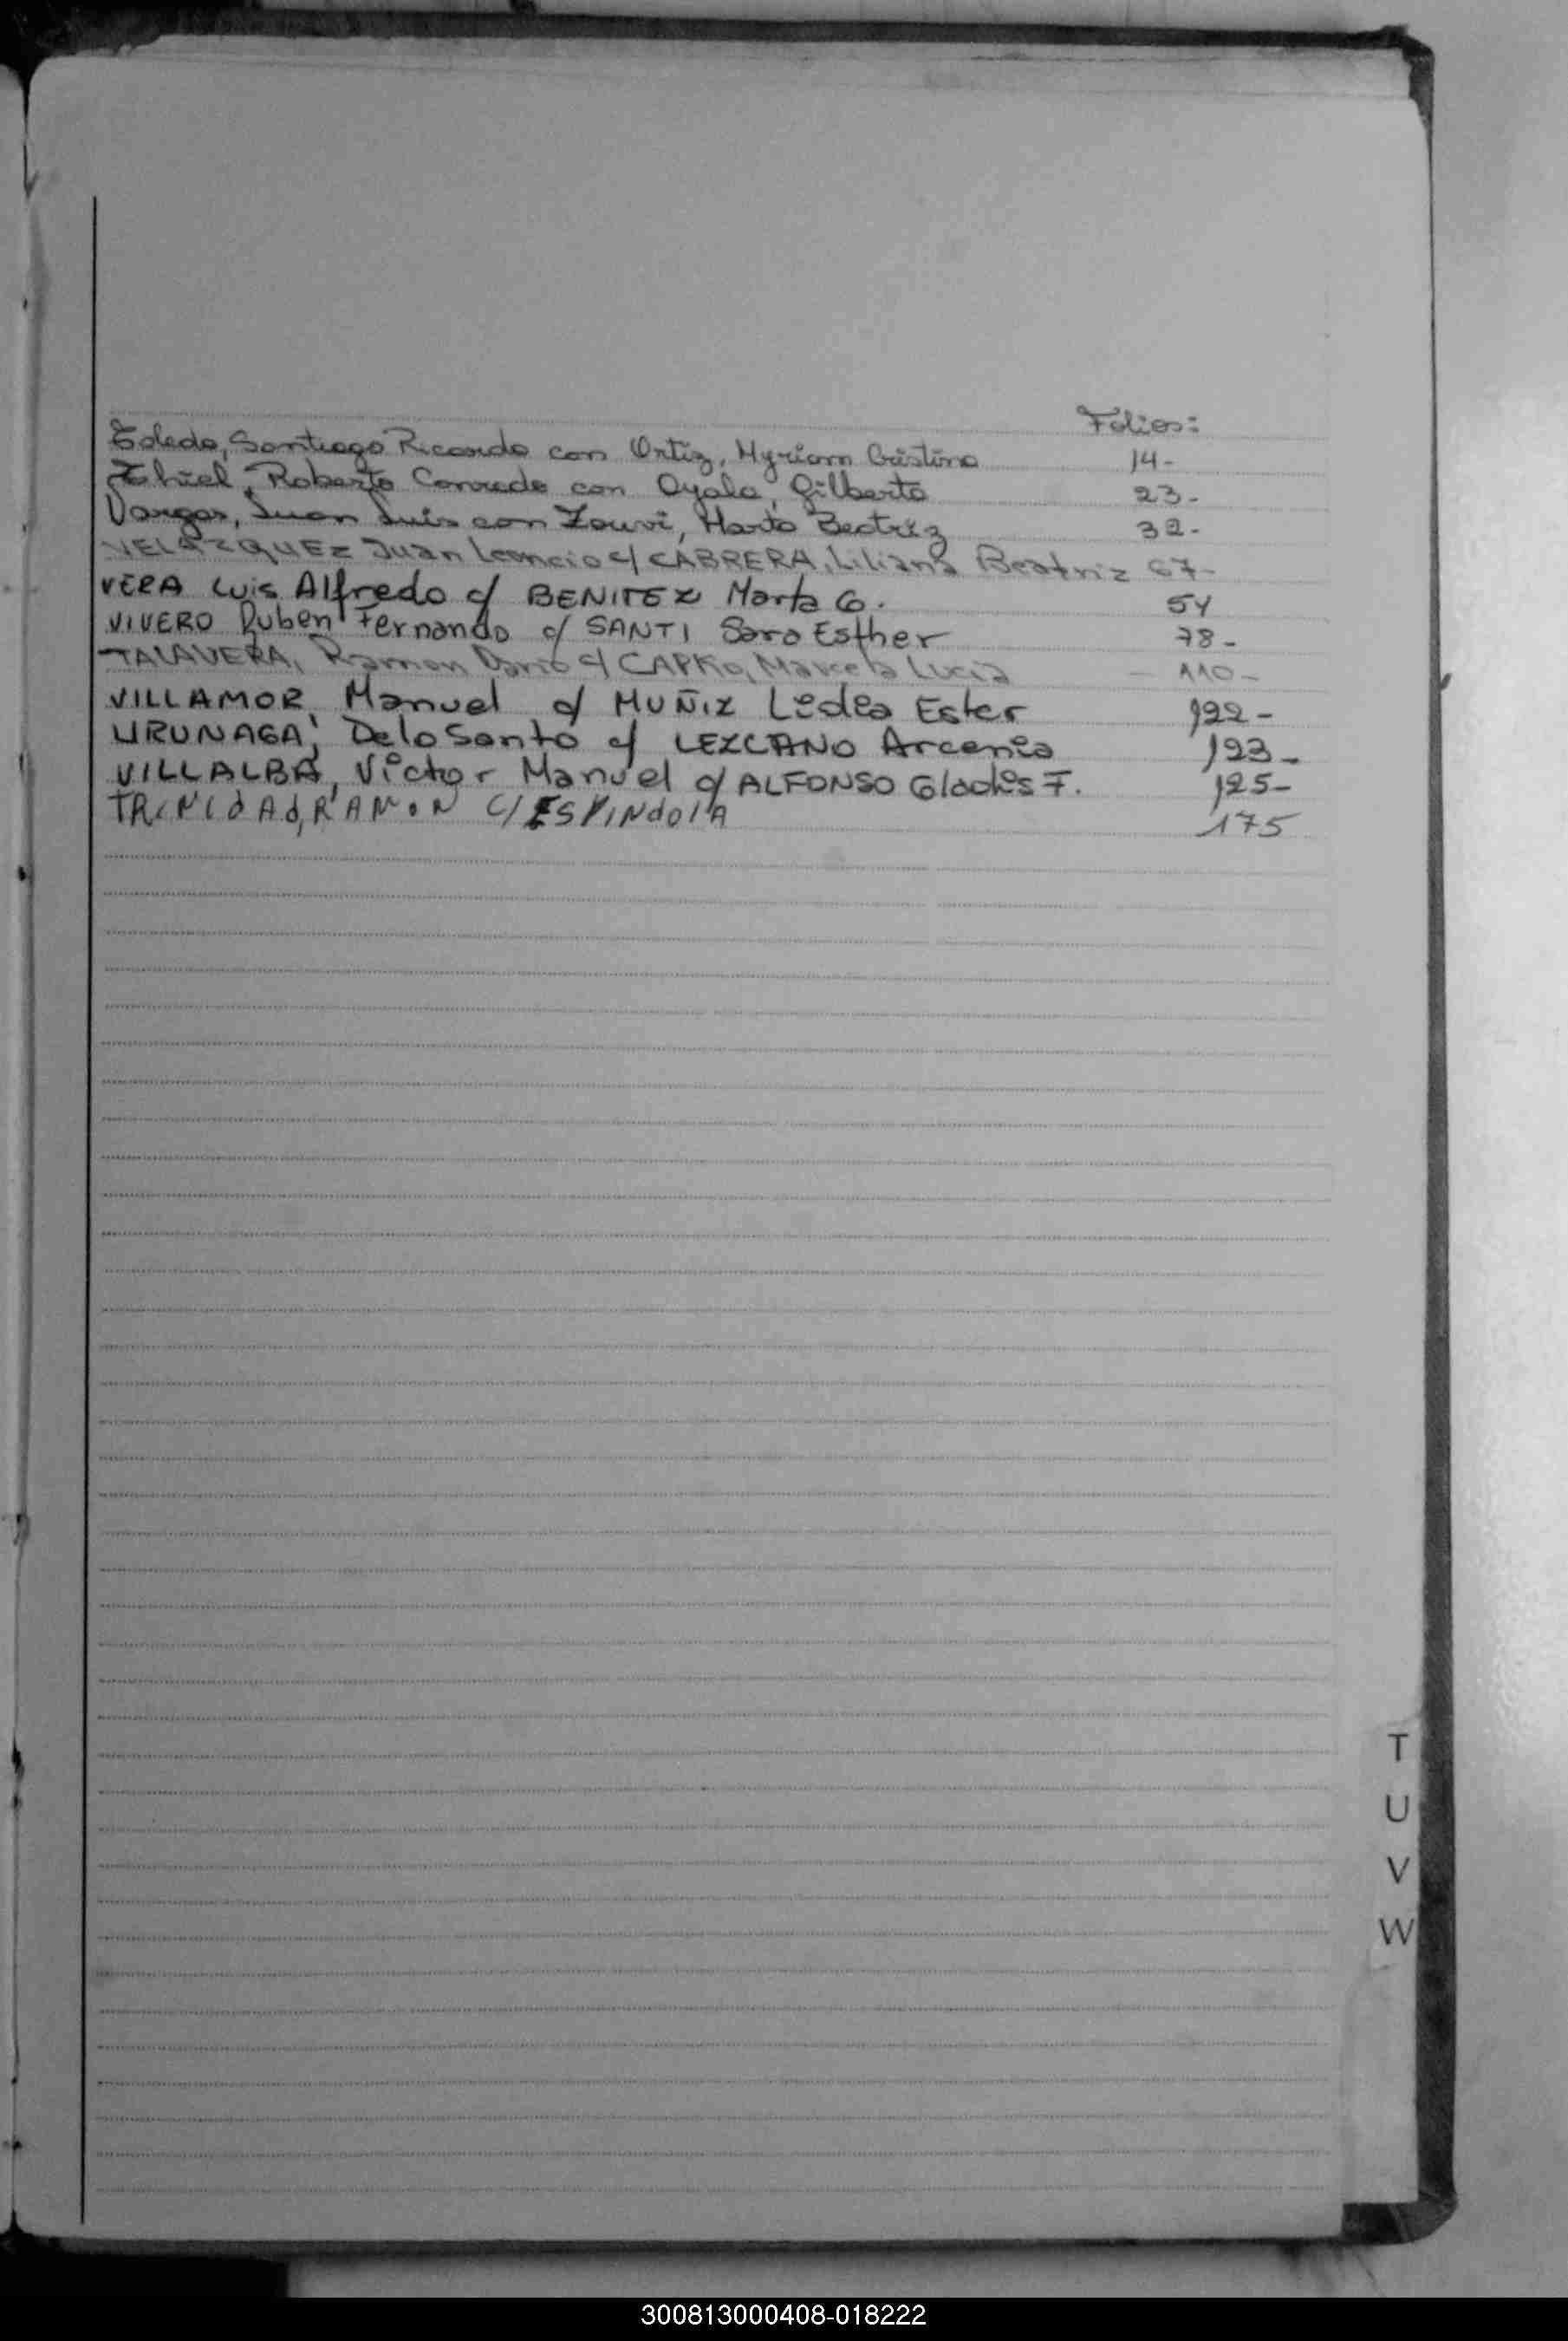 Folios:
Toledo, Santiago Ricardo con Ortiz, Myriam Cristina 14-
Roberto Conrado con Ayala, Gilberto 23-
Vargas, Juan Luis con Zouvi, Marta Beatriz 32-
VELAZQUEZ Juan Leoncio c/ CABRERA, Liliana Beatriz 67-
VERA Luis Alfredo c/ BENITEZ Marta G. 54
VIVERO Ruben Fernando c/ SANTI Sara Esther 78-
TALAVERA, Ramon Dario c/ CAPKO, Marcela Lucia - 110-
VILLAMOR Manuel c/ MUÑIZ Lidia Ester 122-
URUNAGA, Delo Santo c/ LEZCANO Arcenia 123-
VILLALBA, Victor Manuel c/ ALFONSO Gladis F. 125-
TRINIdAd, RAMON C/ ESPINdOlA 175
T
U
V
W
300813000408-018222